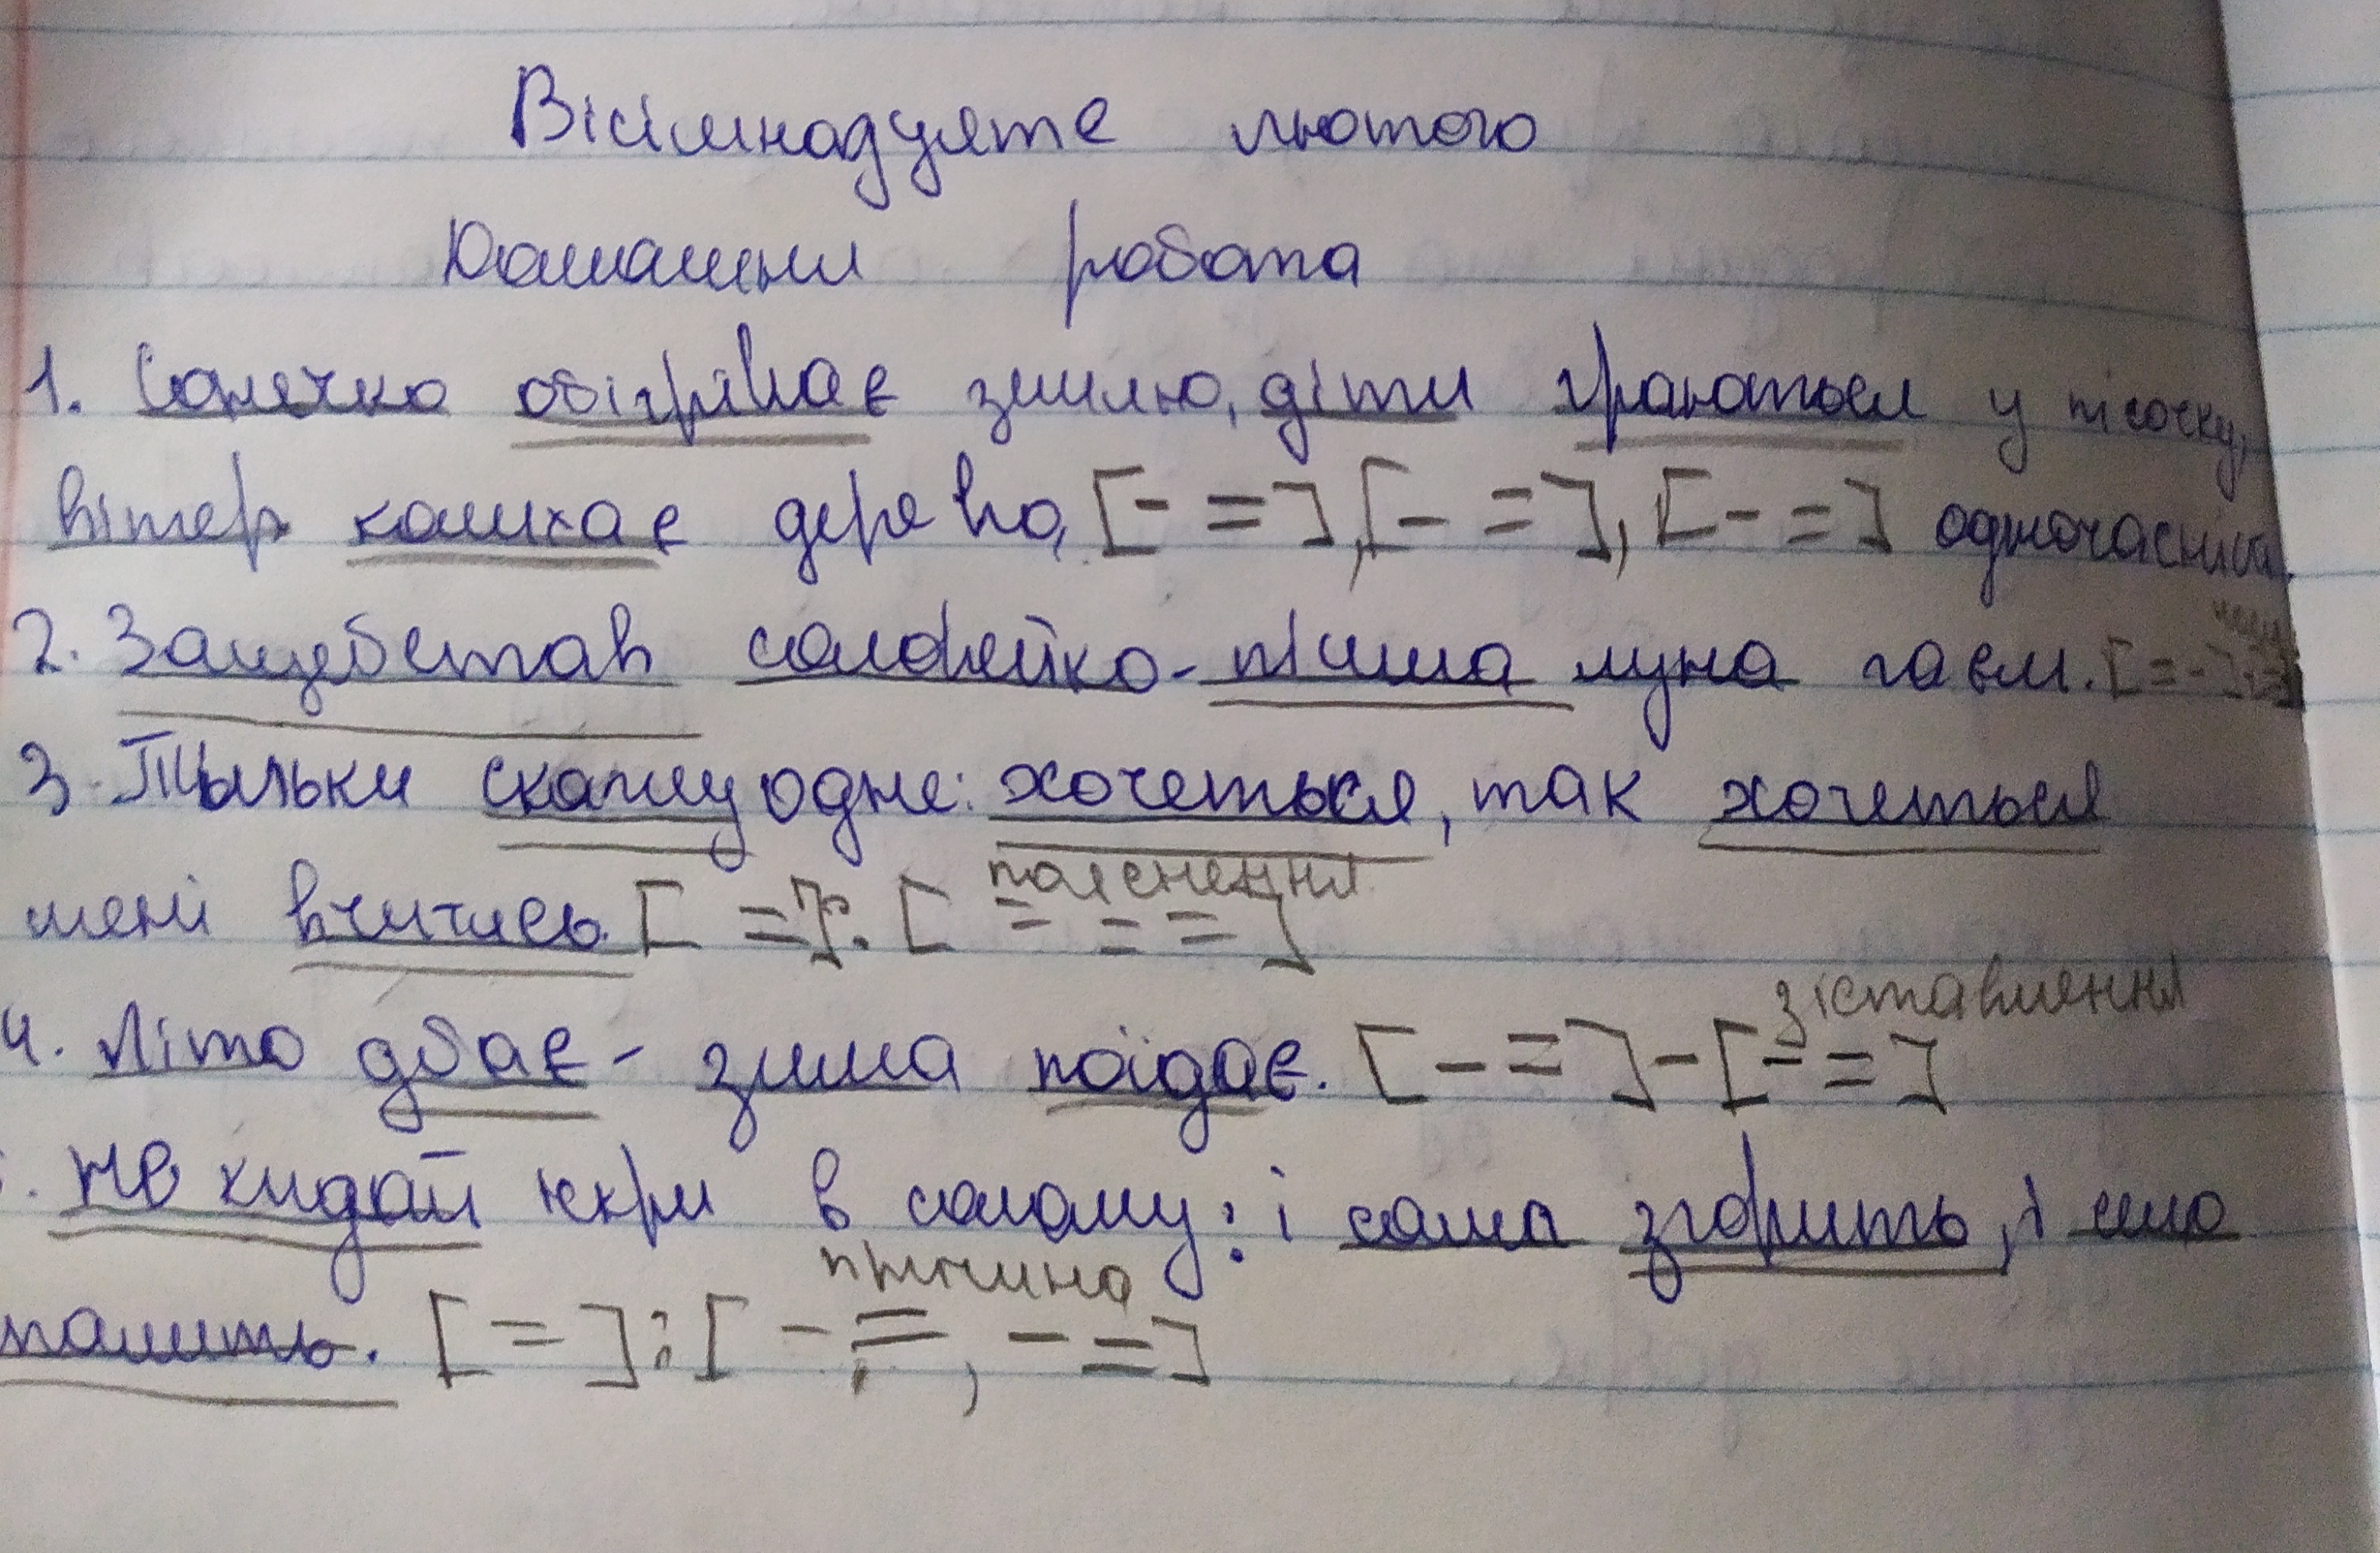 Вісімнадцяте лютого
Домашня робота
1. Сонечко обігріває землю, діти граються у пісочку,
вітер колихає дерево, [– =], [– =], [– =] одночасність.
2. Защебетав соловейко - пішла луна гаєм. [= –]
3. Тільки скажу одне: хочеться, так хочеться
пояснення
мені вчитись. [ =]: [ = = = ]
зіставлення
4. Літо дбає - зима поїдає. [ – = ] – [ – = ]
. Не кидай іскри в солому: і сама згорить, і село
причина
палить. [ = ] : [ – =, – = ]